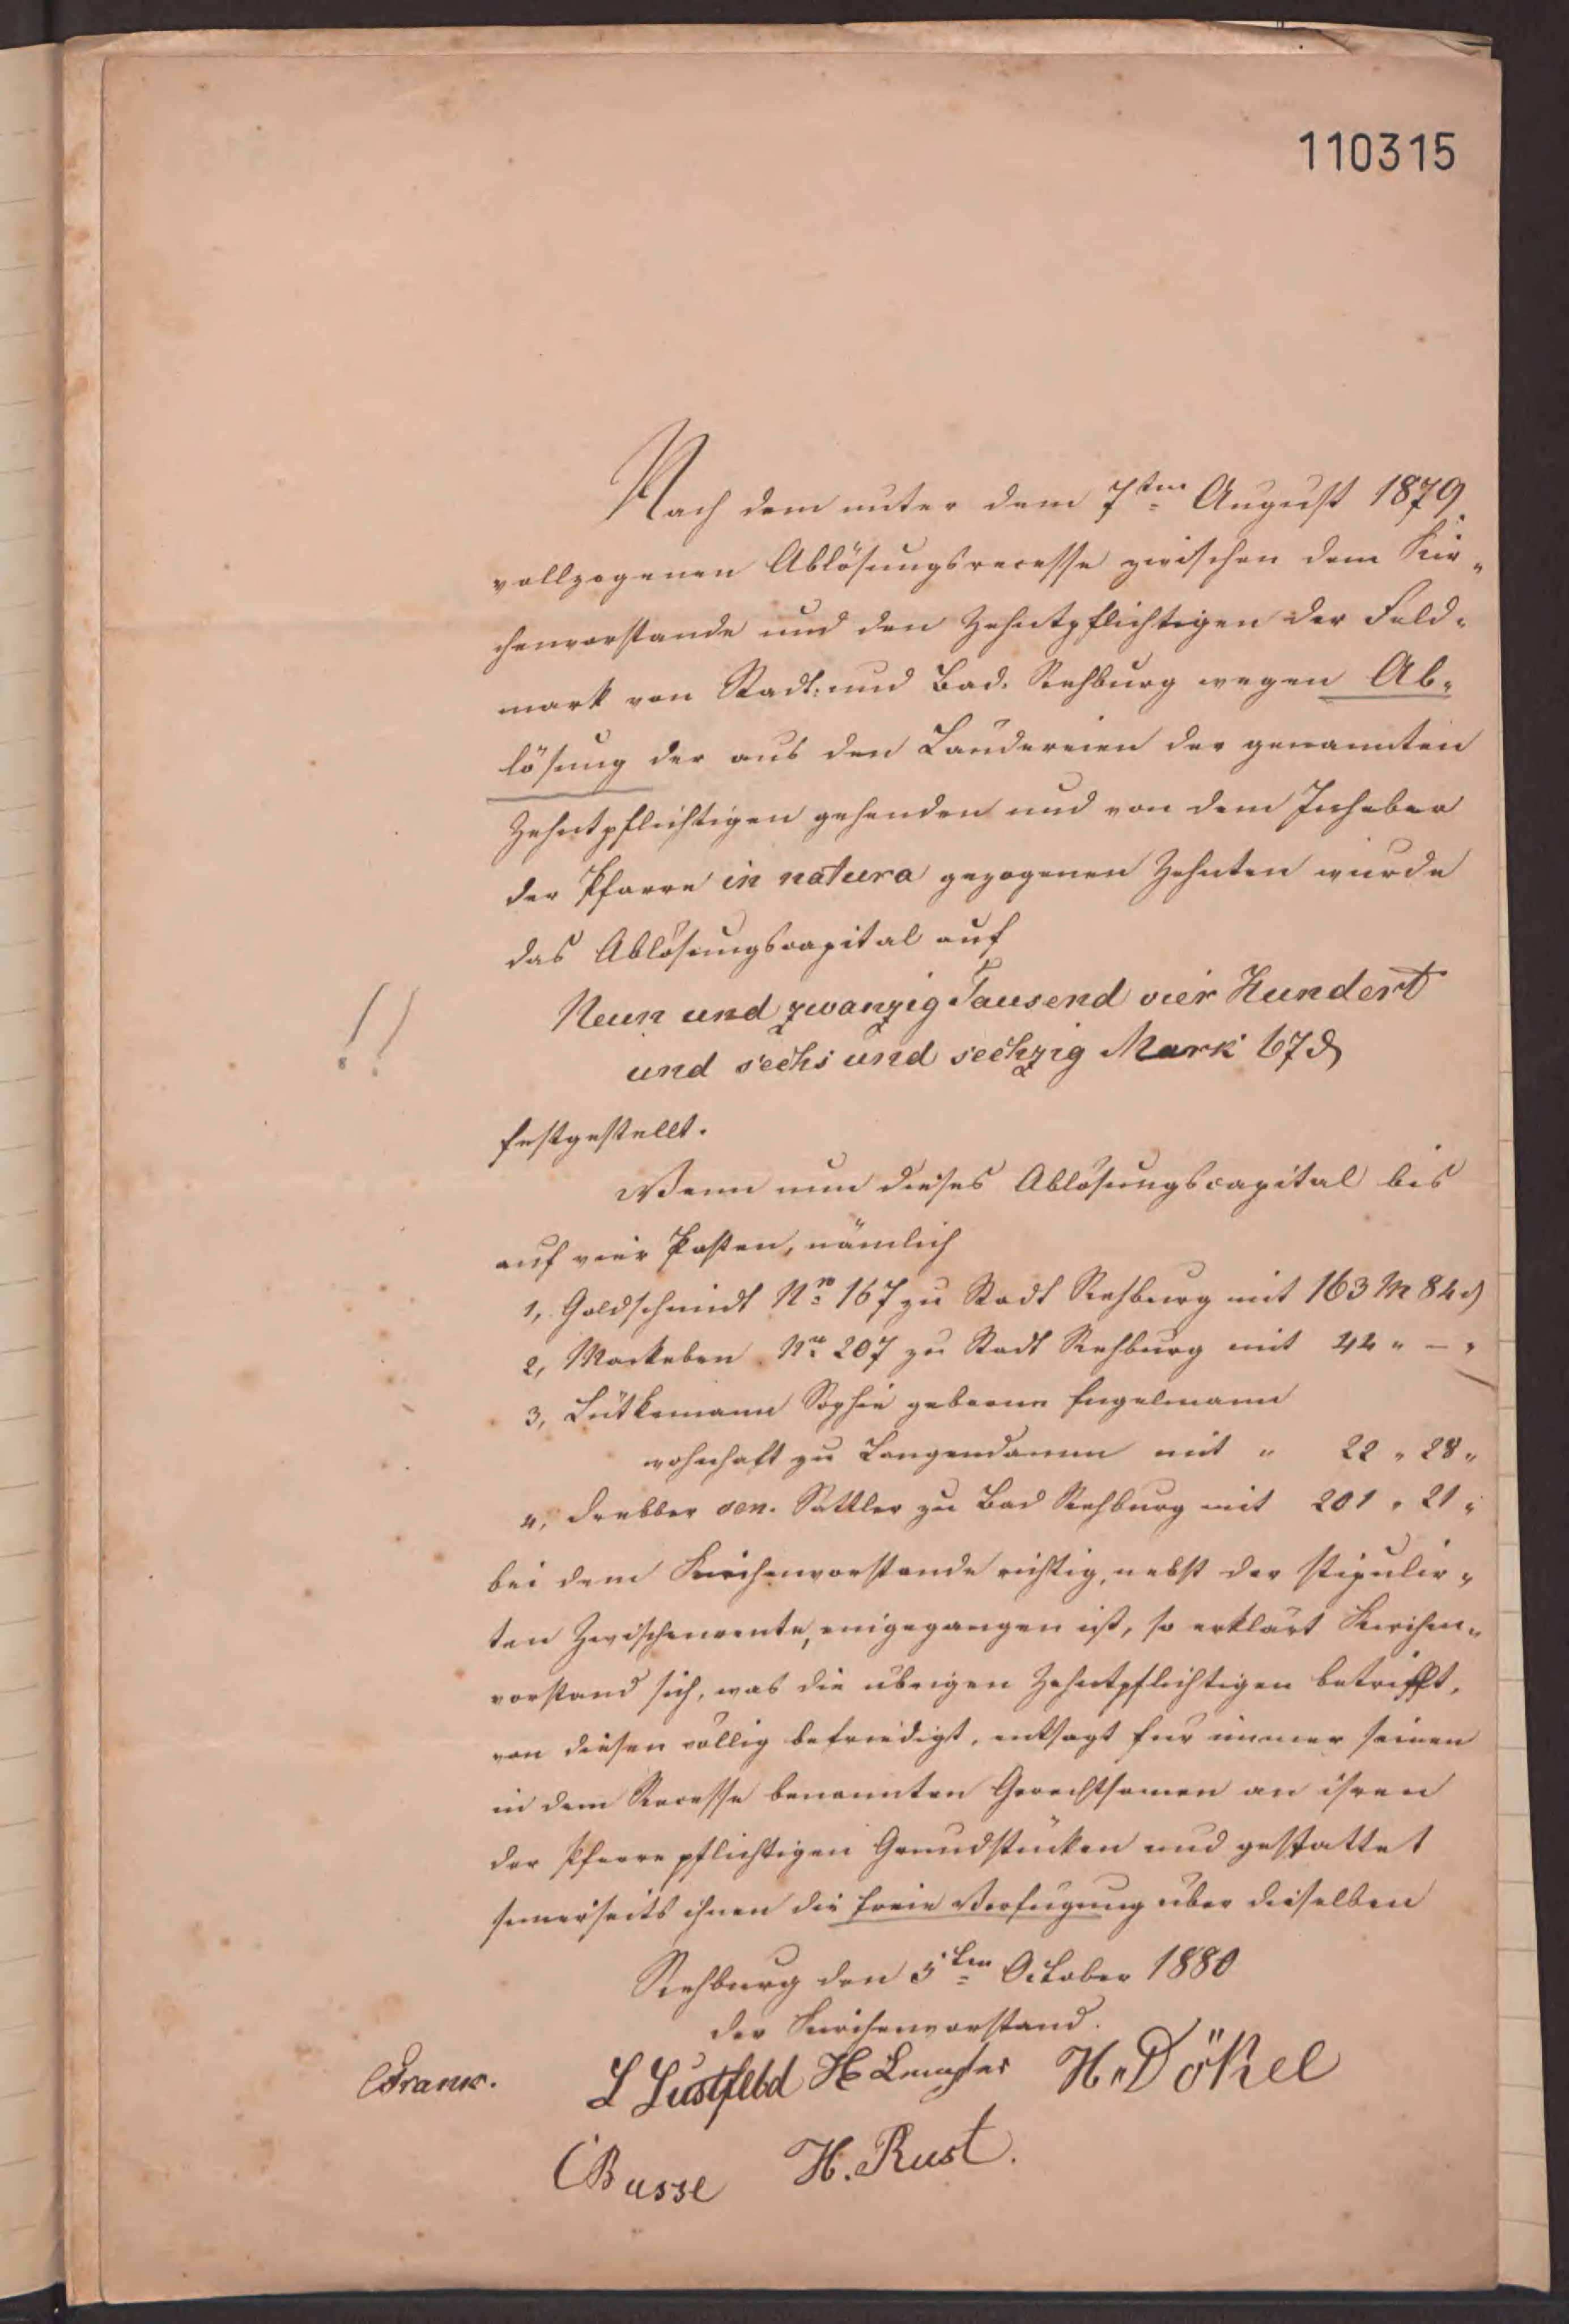 110315
Nach dem unter dem 7ten August 1879
vollzogenen Ablösungsrecesse zwischen dem Kir„
chenvorstande und den Zehntpflichtigen der Feld„
mark von Stadt: und Bad. Rehburg wegen Ab„
lösung der aus den Ländereien der genannten
Zehntpflichtigen gehenden und von dem Inhaber
der Pfarre in natura gezogenen Zehnten wurde
das Ablösungscapital auf
Neun und zwanzig Tausend vier Hundert
!!
und sechs und sechzig Mark 67 ₰
festgestellt.
Wenn nun dieses Ablösungscapital bis
auf vier Posten, nämlich
1, Goldschmidt Nro 167 zu Stadt Rehburg mit 163 M 84 ₰
2, Mackeben Nro 207 zu Stadt Rehburg mit 44 „ – „
3, Lütkemann Sophie geborne Engelmann
wohnhaft zu Langendamm mit „ 22 „ 28 „
4, Drebber sen. Sattler zu Bad Rehburg mit 201 „ 21 „
bei dem Kirchenvorstande richtig, nebst der stipulir„
ten Zwischenrente, eingegangen ist, so erklärt Kirchen„
vorstand sich, was die übrigen Zehntpflichtigen betrifft,
von diesen völlig befriedigt, entsagt für immer seinen
in dem Recesse benannten Gerechtsamen an ihren
der Pfarre pflichtigen Grundstücken und gestattet
seinerseits ihnen die freie Verfügung über dieselben
Rehburg den 5ten October 1880
der Kirchenvorstand.
L Lustfeld H H. Dökel
CBusse H. Rust.